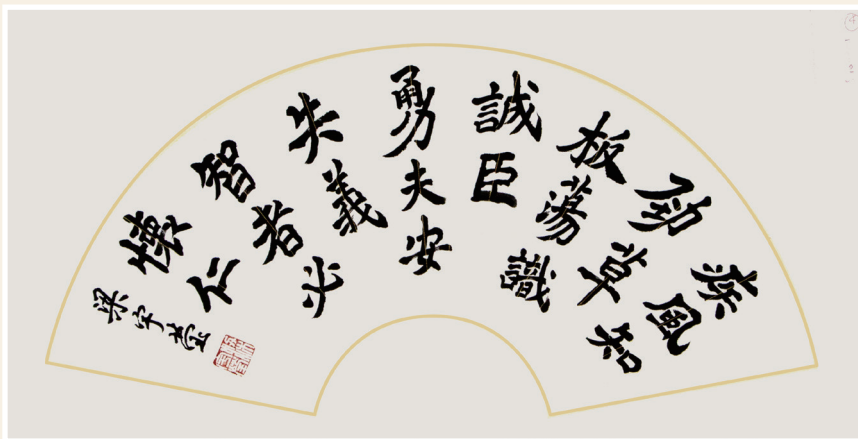 疾風知
勁草
板蕩識
誠臣
勇夫安
失義
智者必
懷仁
梁宇